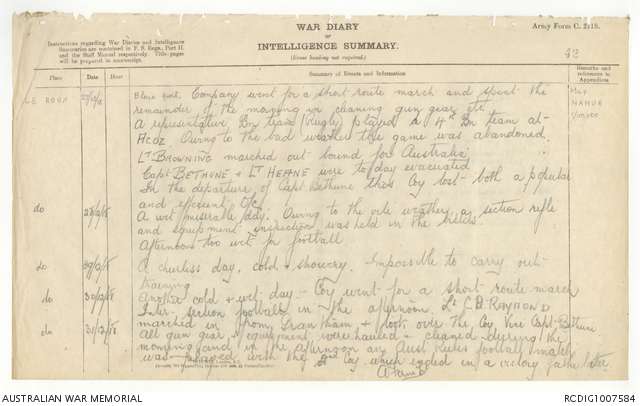 WAR DIARY
OF
INTELLIGENCE SUMMARY.
(Erase heading not required.)
Army Form C. 2118.
Instructions regarding War Diaries and Intelligence
Summaries are contained in F. S. Regs., Part II.
and the Staff Manual respectively. Title pages
will be prepared in manuscript.
Place
Date
Hour
Summary of Events and Information
Remarks and
references to
Appendices
LE ROUX 27/12/18 Company went for a short route march and spent the
Map
NAMUR
1/100,000
remainder of the morning in cleaning gun gear etc
A representative Bn team (Rugby) played a 4th Bn team at
ACOZ Owing to the bad weather the game was abandoned.
Lt BROWNING marched out bound for Australia.
Capt BETHUNE & Lt HEANE were to day evacuated
In the departure of Capt Bethune this Coy lost both a popular
and efficient O/C
do 28/12/18 A wet miserable day. Owing to the vile weather a section rifle
and equipment inspection was held in the billets.
Afternoon too wet for football
do 29/12/18 A cheerless day, cold & showery. Impossible to carry out
training
do 30/12/18 Another cold & wet day. Coy went for a short route march
Inter-section football in the afternoon. Lt C.B. RAYMOND
marched in from Grantham & took over the Coy vice Capt Bethune
do 31/12/18 All gun gear & equipment were cleaned during the
morning and in the afternoon an Aust Rules football match
was arranged with the Coy which ended in a victory for the latter
AUSTRALIAN WAR MEMORIAL
RCDIG1007584